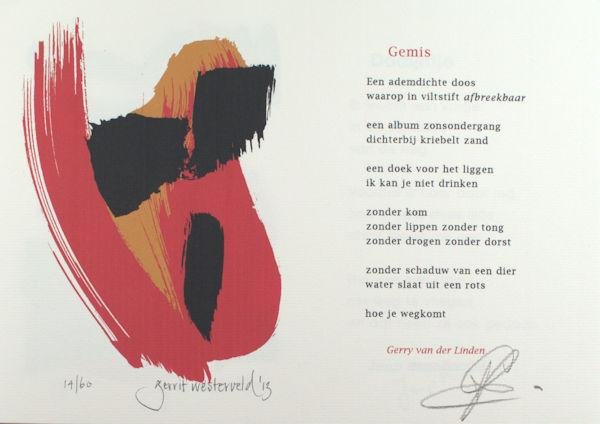 Gemis
Een ademdichte doos
waarop in viltstift afbreekbaar
een album zonsondergang
dichterbij kriebelt zand
een doek voor het liggen
ik kan je niet drinken
zonder kom
zonder lippen zonder tong
zonder drogen zonder dorst
zonder schaduw van een dier
water slaat uit een rots
hoe je wegkomt
Gerry van der Linden
14/60
gerrit westerveld '13